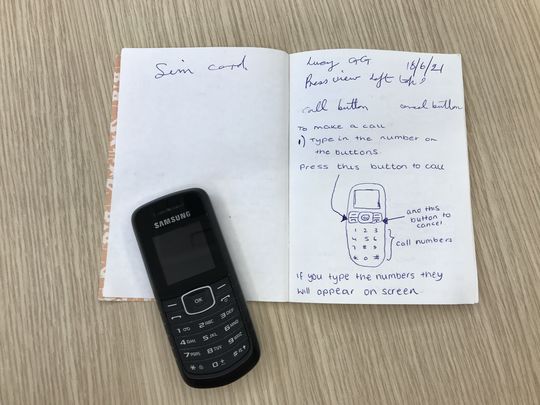 Sim card
Lucy GG 18/6/21
Press view left top
call button cancel button
To make a call
1) Type in the number on
the buttons.
Press this button to call
and this
button to
cancel
1 2 3
4 5 6
7 8 9
* 0 #
call numbers
if you type the numbers they
will appear on screen
SAMSUNG
OK
1 2ABC 3DEF
4GHI 5JKL 6MNO
7PQRS 8TUV 9WXYZ
* 0+ #